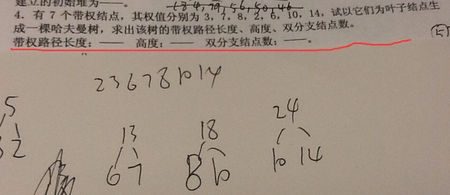 建立的初始堆为——。
4. 有 7 个带权结点，其权值分别为 3，7，8，2，6，10，14，试以它们为叶子结点生
成一棵哈夫曼树，求出该树的带权路径长度、高度、双分支结点数。
带权路径长度：—— 高度：—— 双分支结点数：——。
2 3 6 7 8 10 14
5
3 2
13
6 7
18
8 10
24
10 14